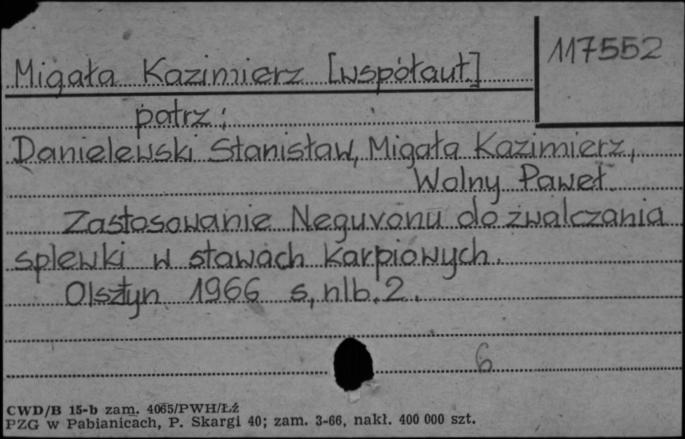 117552
Migała Kazimierz [współaut.]
patrz:
Danielewski Stanisław, Migała Kazimierz,
Wolny Paweł.
Zastosowanie Neguvonu do zwalczania
splewki w stawach karpiowych.
Olsztyn 1966 s. nlb. 2.
6
CWD/B 15-b zam. 4065/PWH/Łź
PZG w Pabianicach, P. Skargi 40; zam. 3-66, nakł. 400 000 szt.